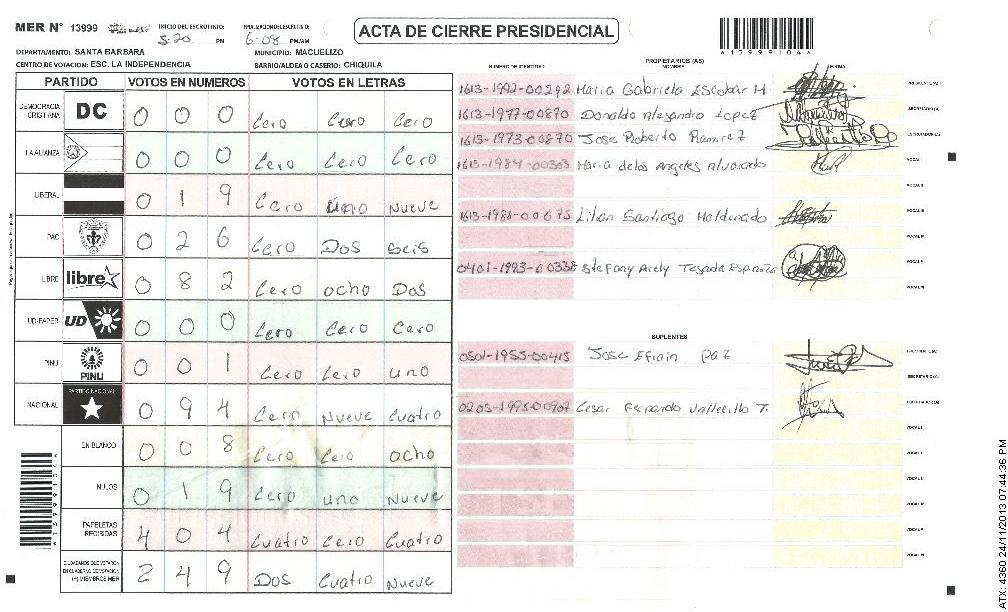 MER N° 13999 INICIO DEL ESCRUTINIO: 5:20 PM FINALIZACION DEL ESCRUTINIO: 6:08 PM/AM
ACTA DE CIERRE PRESIDENCIAL
A13999104A
DEPARTAMENTO: SANTA BARBARA MUNICIPIO: MACUELIZO
CENTRO DE VOTACION: ESC. LA INDEPENDENCIA BARRIO/ALDEA O CASERIO: CHIQUILA
PARTIDO VOTOS EN NUMEROS VOTOS EN LETRAS
DEMOCRACIA CRISTIANA DC 0 0 0 Cero Cero Cero
LA ALIANZA 0 0 0 Cero Cero Cero
LIBERAL 0 1 9 Cero Uno Nueve
PAC 0 2 6 Cero Dos Seis
LIBRE libre 0 8 2 Cero ocho Dos
UD-FAPER UD 0 0 0 Cero Cero Cero
PINU PINU 0 0 1 Cero Cero uno
NACIONAL PARTIDO NACIONAL 0 9 4 Cero Nueve Cuatro
EN BLANCO 0 0 8 Cero Cero ocho
NULOS 0 1 9 Cero uno Nueve
PAPELETAS RECIBIDAS 4 0 4 Cuatro Cero Cuatro
CIUDADANOS QUE VOTARON EN CUADERNO DE VOTACION (+) MIEMBROS MER 2 4 9 Dos Cuatro Nueve
PROPIETARIOS (AS)
NUMERO DE IDENTIDAD NOMBRE FIRMA
1613-1992-00292 Maria Gabriela Escobar M PRESIDENTE(A)
1613-1977-00870 Donaldo Alejandro Lopez SECRETARIO(A)
1613-1973-00870 Jose Roberto Ramirez ESCRUTADOR(A)
1613-1984-00303 Maria delos Angeles Alvarado VOCAL I
VOCAL II
1613-1988-00675 Lilian Santiago Maldonado VOCAL III
VOCAL IV
0401-1993-00338 Stefany Arely Tejada Espinoza VOCAL V
VOCAL VI
SUPLENTES
0501-1953-00415 Jose Efrain Paz PRESIDENTE(A)
SECRETARIO(A)
0205-1995-00907 Cesar Fernando Vallecillo T. ESCRUTADOR(A)
VOCAL I
VOCAL II
VOCAL III
VOCAL IV
VOCAL V
VOCAL VI
ATX: 4360 24/11/2013 07:44:36 PM